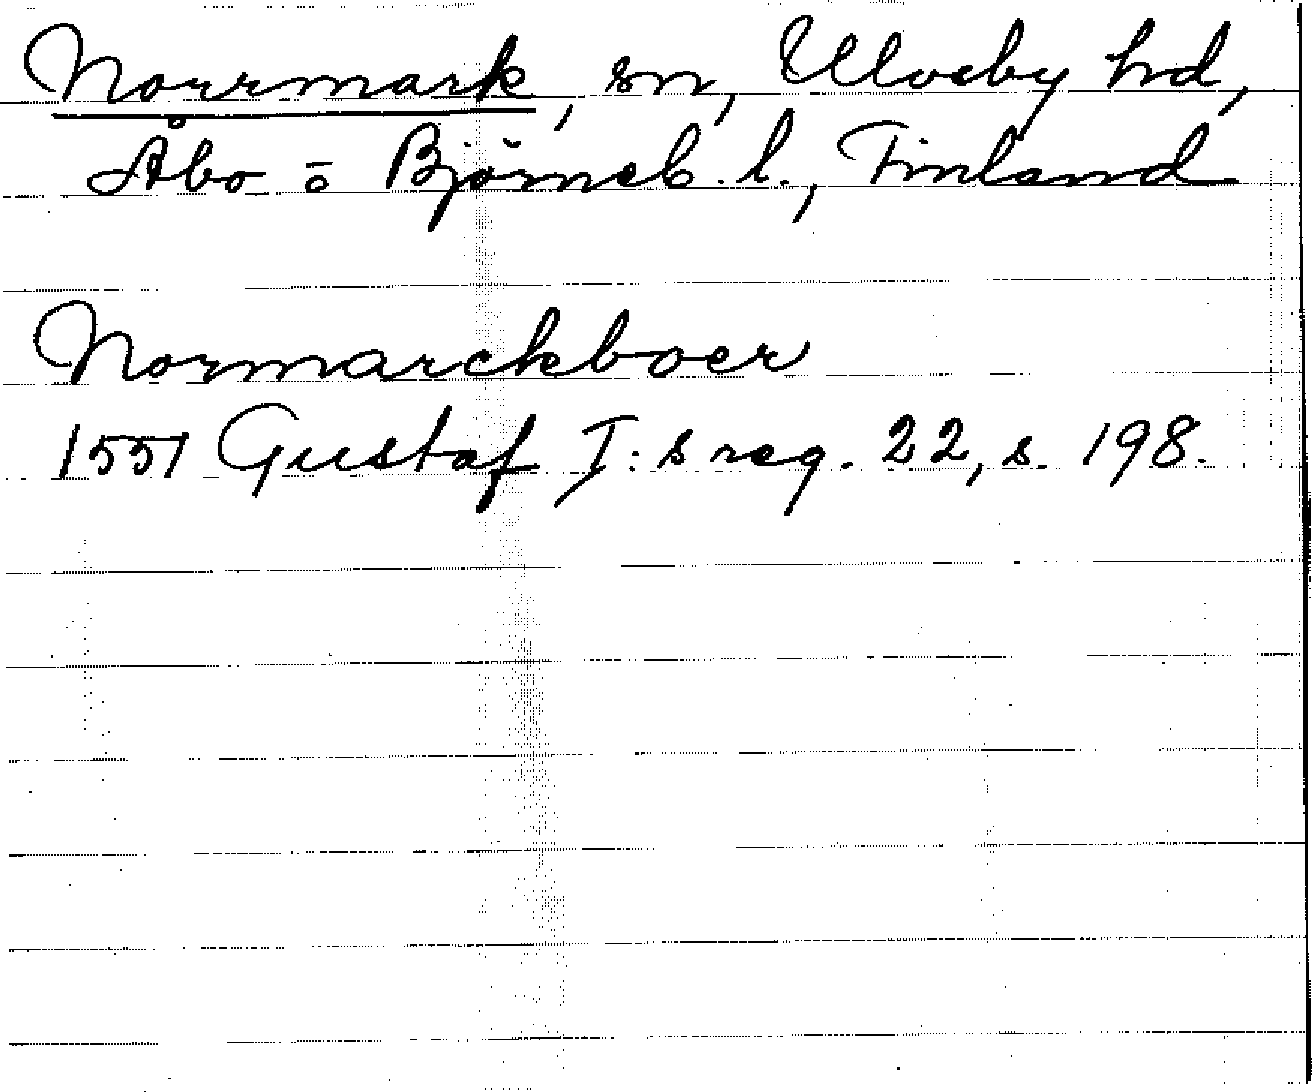 Norrmark, sn, Ulvsby hd,
Åbo o Björneb. l., Finland
Normarckboer
1551 Gustaf I:s reg. 22, s. 198.